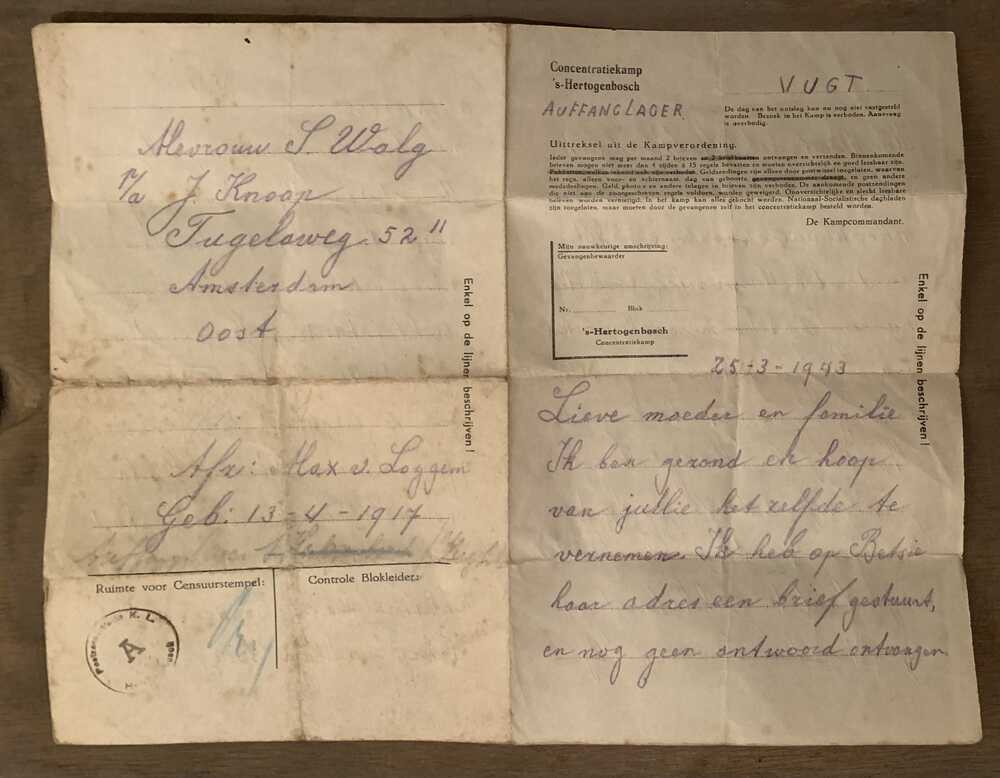 Mevrouw S. Walg
p/a J. Knoop
Tugelaweg 52 II
Amsterdam
Oost
Enkel op de lijnen beschrijven!
Afz: Max v. Loggem
Geb: 13-4-1917
Ruimte voor Censuurstempel:
Controle Blokleider:
K. L.
A
Concentratiekamp
's-Hertogenbosch
VUGT
AUFFANGLAGER
De dag van het ontslag kan nu nog niet vastgesteld
worden. Bezoek in het Kamp is verboden. Aanvraag
is overbodig.
Uittreksel uit de Kampverordening.
Ieder gevangene mag per maand 2 brieven en 2 briefkaarten ontvangen en verzenden. Binnenkomende
brieven mogen niet meer dan 4 zijden à 15 regels bevatten en moeten overzichtelijk en goed leesbaar zijn.
Geldzendingen zijn alleen door postwissel toegelaten, waarvan
het reçu, alleen voor- en achternaam, dag van geboorte, en geen andere
mededeelingen. Geld, photo's en andere inlagen in brieven zijn verboden. De aankomende postzendingen
die niet aan de voorgeschreven regels voldoen, worden geweigerd. Onoverzichtelijke en slecht leesbare
brieven worden vernietigd. In het kamp kan alles gekocht worden. Nationaal-Socialistische dagbladen
zijn toegelaten, maar moeten door de gevangenen zelf in het concentratiekamp besteld worden.
De Kampcommandant.
Mijn nauwkeurige omschrijving:
Gevangenbewaarder
Nr. Blok
's-Hertogenbosch
Concentratiekamp
Enkel op de lijnen beschrijven!
25-3-1943
Lieve moeder en familie
Ik ben gezond en hoop
van jullie het zelfde te
vernemen. Ik heb op Betsie
haar adres een brief gestuurt,
en nog geen antwoord ontvangen